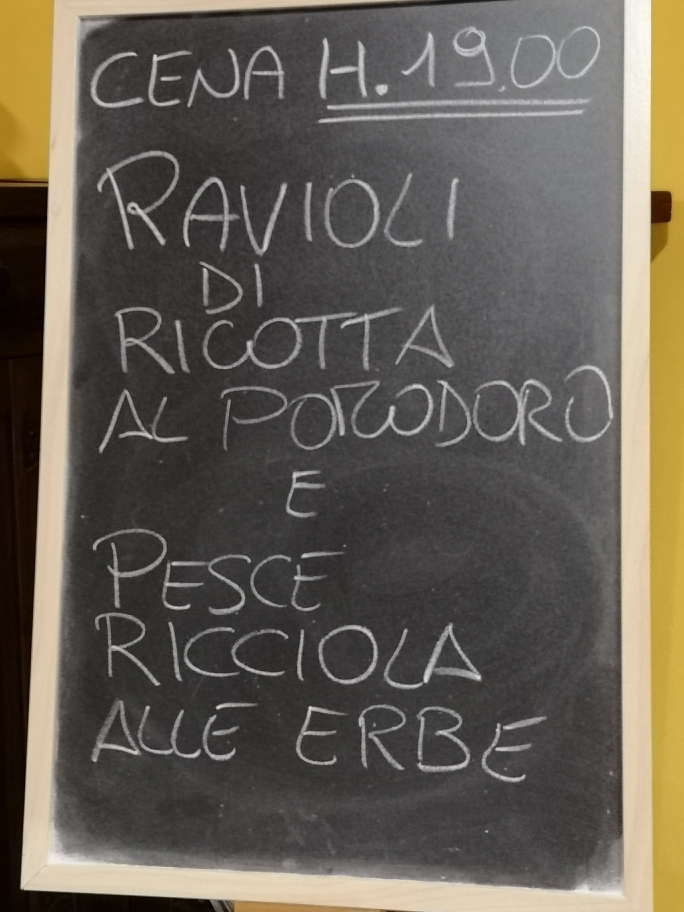 CENA H. 19.00
RAVIOLI
DI
RICOTTA
AL POMODORO
E
PESCE
RICCIOLA
ALLE ERBE